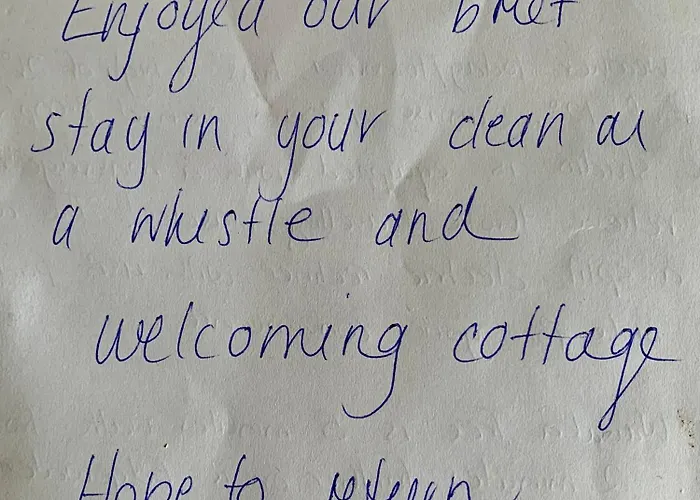 Enjoyed our brief
stay in your clean as
a whistle and
welcoming cottage
Hope to return